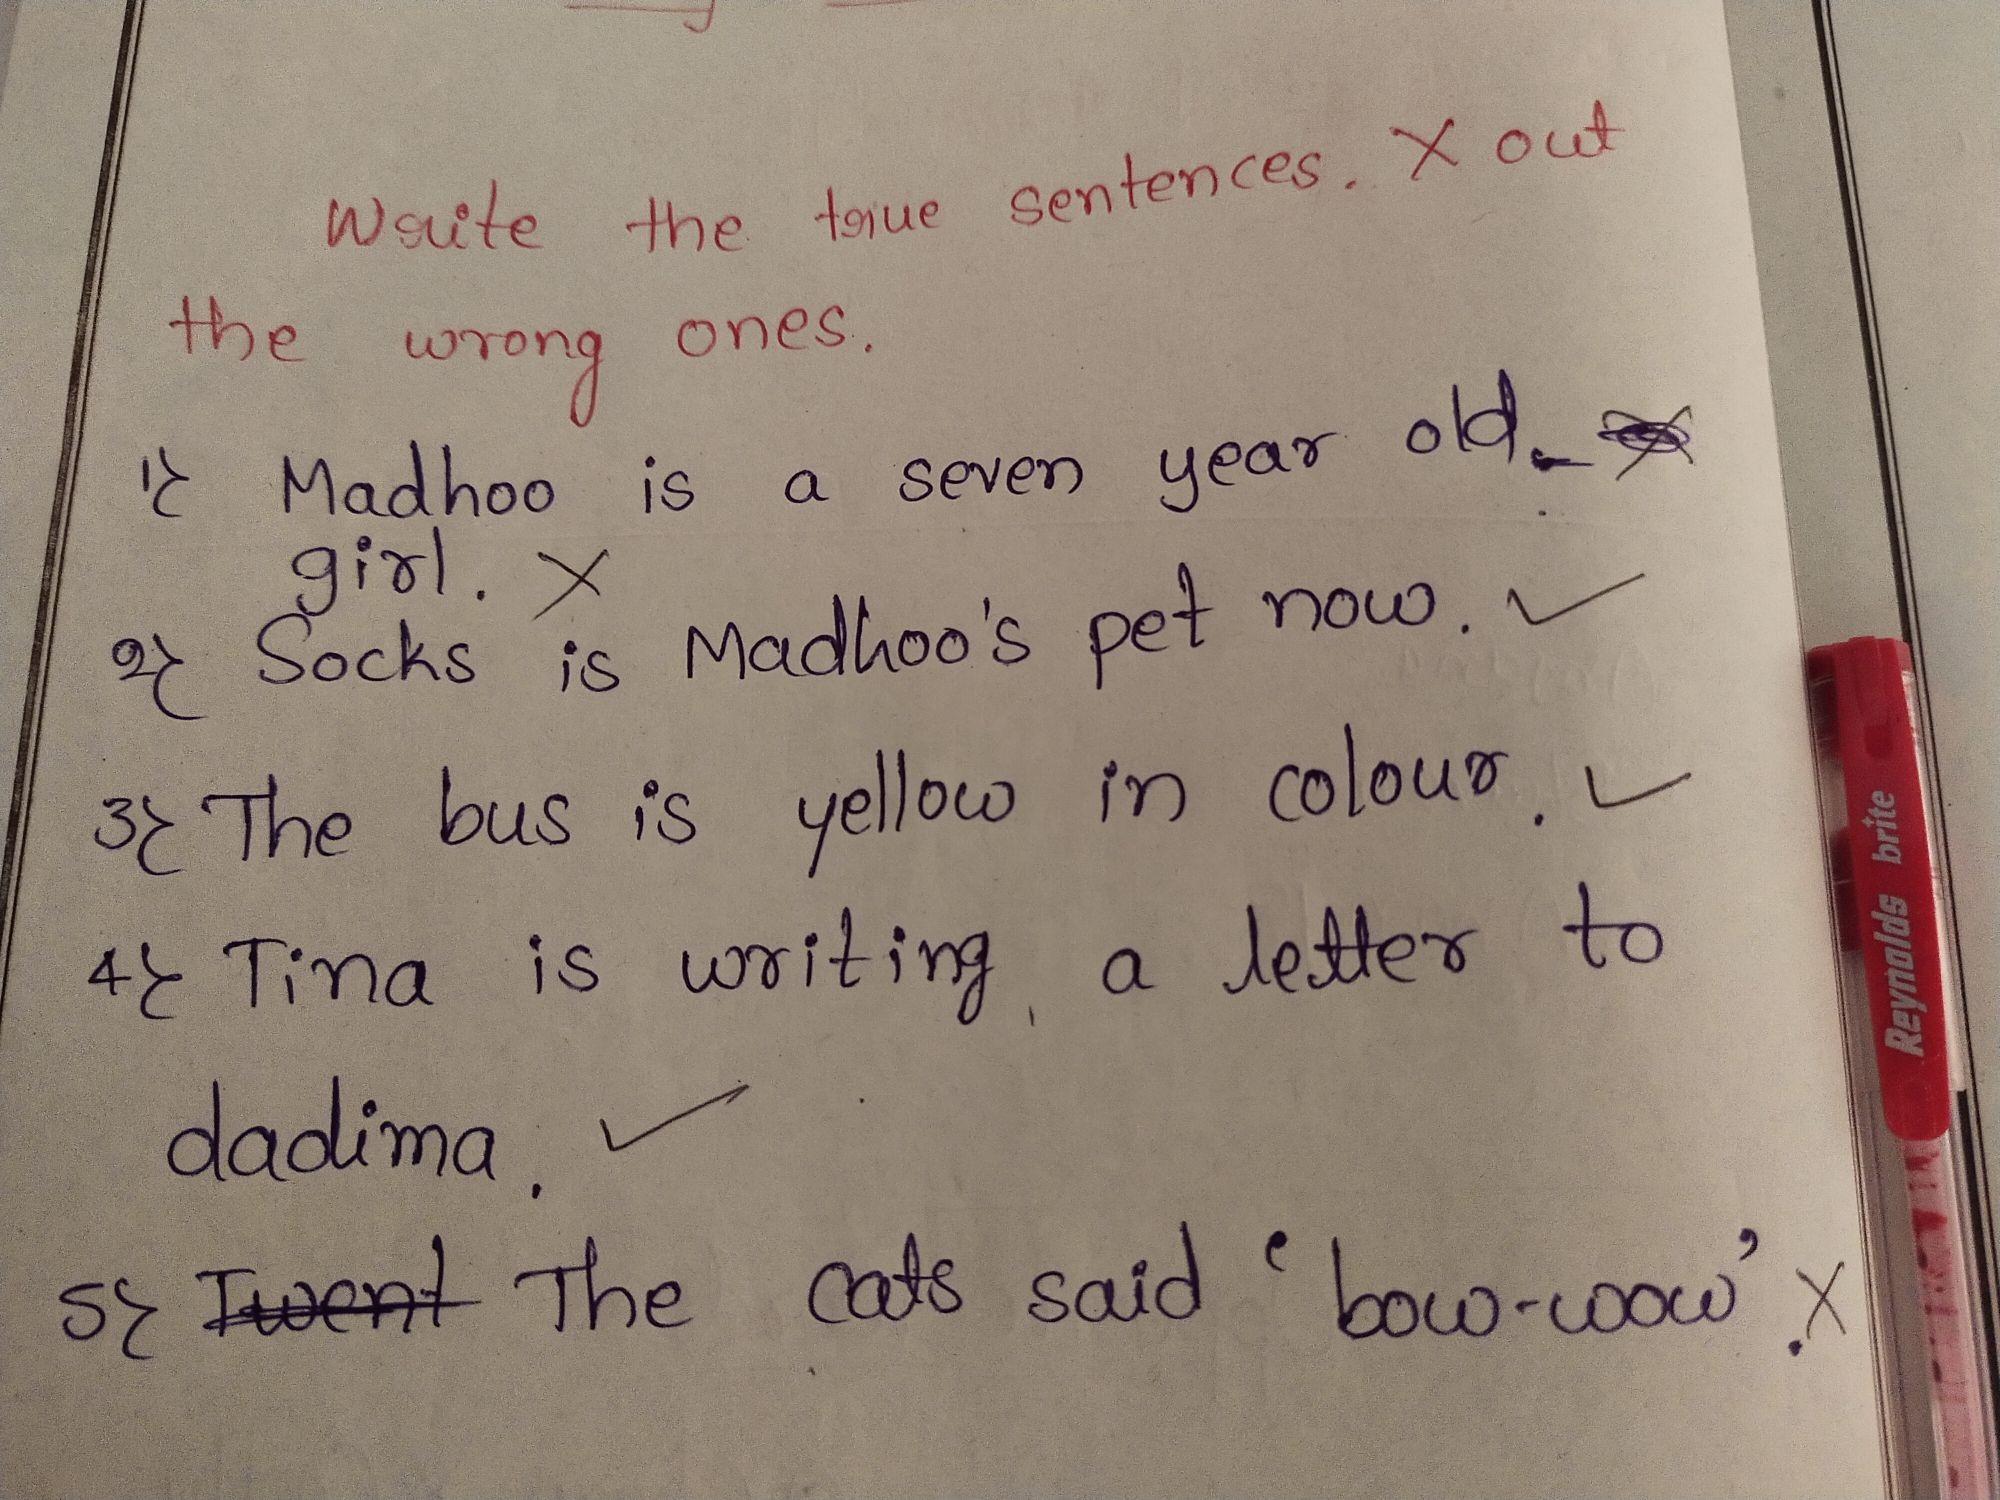 Write the true sentences. X out
the wrong ones.
1} Madhoo is a seven year old.
girl. X
2} Socks is Madhoo's pet now. ✓
3} The bus is yellow in colour. ✓
4} Tina is writing a letter to
dadima. ✓
5} I went The cats said 'bow-wow'. X
Reynolds brite